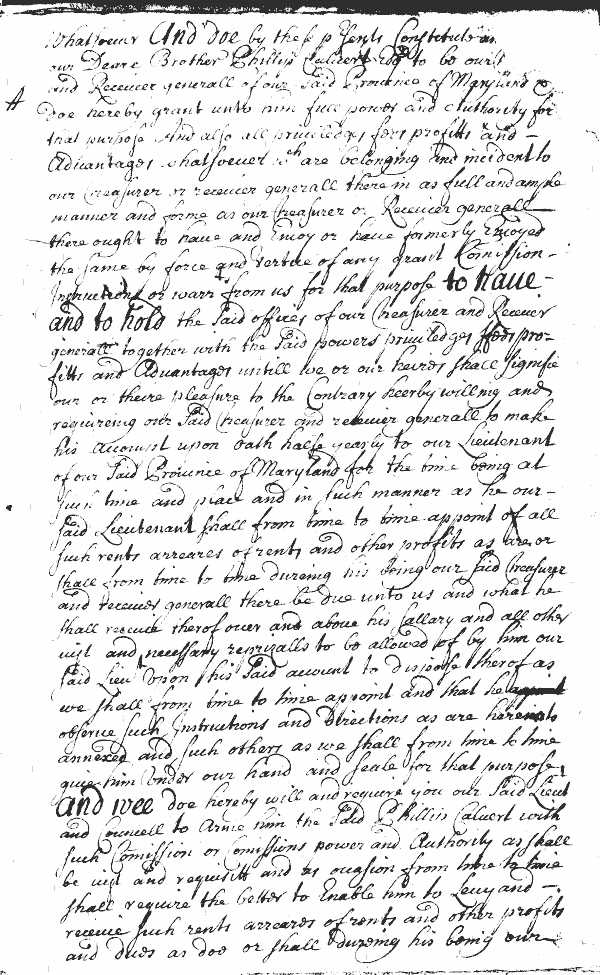 Whatsoever And doe by these psents Constitute
our Deare Brother Phillip Calvert to be our
and Receiver generall of our Said Province of Maryland
A
doe hereby grant unto him full power and Authority for
that purpose And also all priviledges fees profitts and –
Advantages whatsoever wch are belonging and incident to
our Treasurer or receiver generall therein as full and ample
manner and forme as our Treasurer or Receiver generall
there ought to have and Enioy or have formerly Enioyed
the same by force and vertue of any grant Comission –
Instructions or warrt from us for that purpose to have –
and to hold the Said offices of our Treasurer and Receiver
generall together with the Said powers priviledges ffees pro–
fitts and Advantages untill we or our heires shall signifie
our or theire pleasure to the Contrary heerby willing and
requireing our Said Treasurer and receiver generall to make
his Accompt upon oath halfe yearly to our Lieutenant
of our Said Province of Maryland for the time being at
such time and place and in such manner as he our –
said Lieutenant shall from time to time appoint of all
such rents arreares of rents and other profits as are or
shall from time to time dureing his being our said Treasurer
and receiver generall there be due unto us and what he
shall receive therof over and above his Sallary and all other
iust and necessary to be allowed of by him our
said Lieu upon this Said account to dispose therof as
we shall from time to time appoint and that he
observe such Instructions and Directions as are hereunto
annexed and such others as we shall from time to time
give him Under our hand and seale for that purpose
And wee doe hereby will and require you our Said Lieut
and Councell to Arme him the Said Phillip Calvert with
such Comission or Comissions power and Authority as shall
be iust and requisitt and as occasion from time to time
shall require the better to Enable him to Levy and –
receive such rents arreares of rents and other profits
and dues as doe or shall dureing his being our